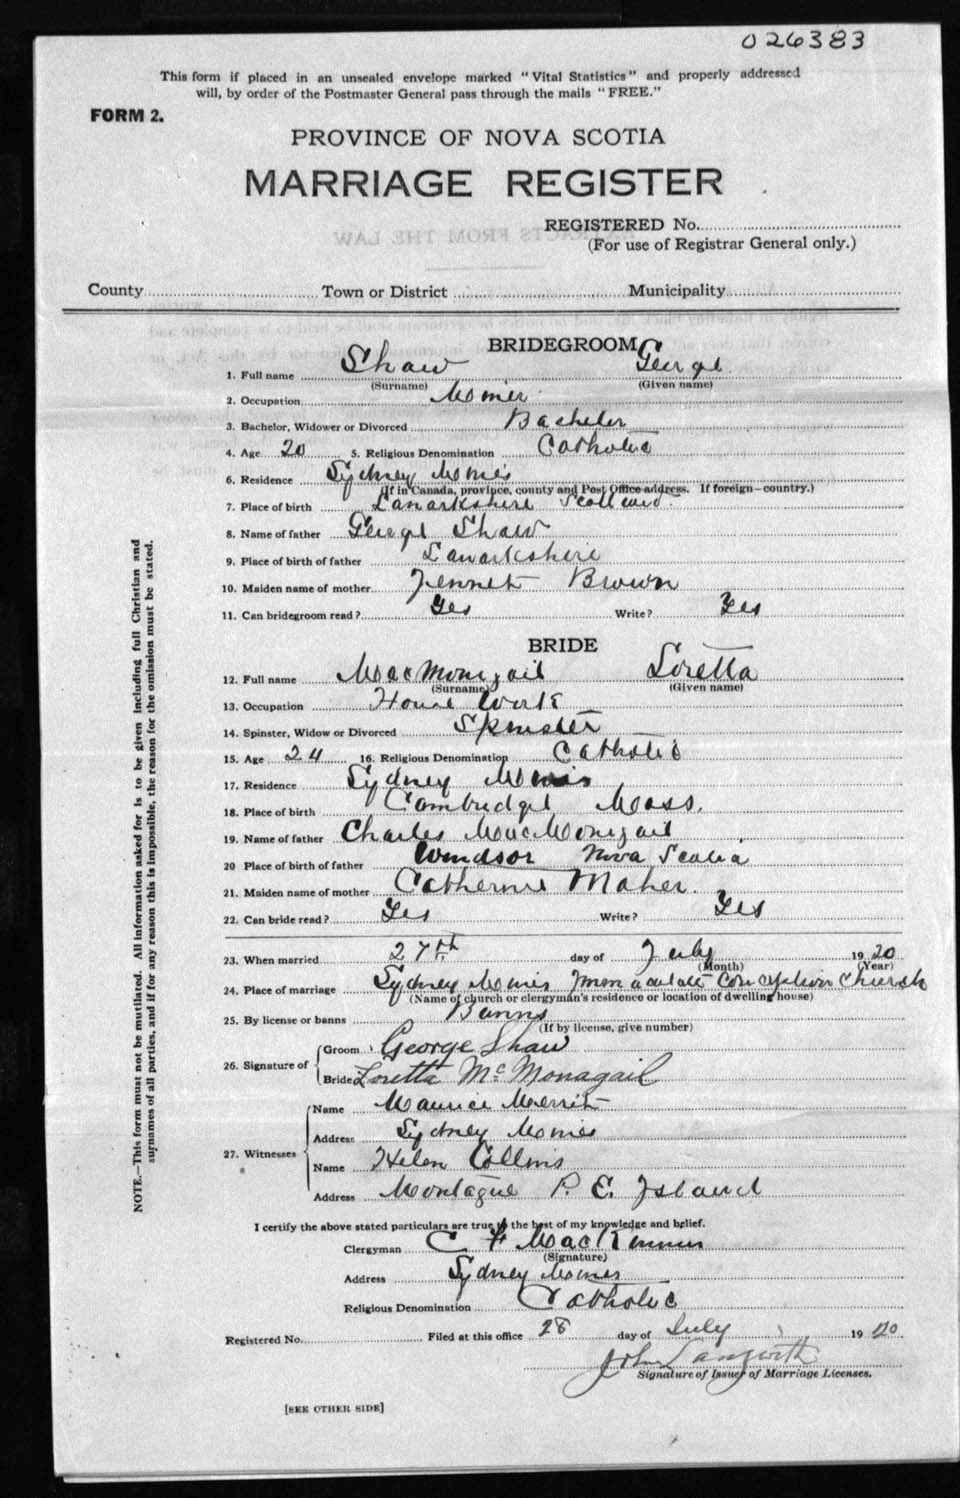 026383
This form if placed in an unsealed envelope marked "Vital Statistics" and properly addressed
will, by order of the Postmaster General pass through the mails "FREE."
FORM 2.
PROVINCE OF NOVA SCOTIA
MARRIAGE REGISTER
REGISTERED No.
(For use of Registrar General only.)
EXTRACTS FROM THE LAW
County Town or District Municipality
BRIDEGROOM
1. Full name Shaw George
(Surname) (Given name)
2. Occupation Miner
3. Bachelor, Widower or Divorced Bachelor
4. Age 20 5. Religious Denomination Catholic
6. Residence Sydney Mines
(If in Canada, province, county and Post Office address. If foreign—country.)
7. Place of birth Lanarkshire Scotland
8. Name of father George Shaw
9. Place of birth of father Lanarkshire
10. Maiden name of mother Jennet Brown
11. Can bridegroom read? Yes Write? Yes
BRIDE
12. Full name MacMonigail Loretta
(Surname) (Given name)
13. Occupation House Work
14. Spinster, Widow or Divorced Spinster
15. Age 24 16. Religious Denomination Catholic
17. Residence Sydney Mines
18. Place of birth Cambridge Mass.
19. Name of father Charles MacMonigail
20 Place of birth of father Windsor Nova Scotia
21. Maiden name of mother Catherine Maher
22. Can bride read? Yes Write? Yes
23. When married 27th day of July 1920
(Month) (Year)
24. Place of marriage Sydney Mines Immaculate Conception Church
(Name of church or clergyman's residence or location of dwelling house)
25. By license or banns Banns
(If by license, give number)
26. Signature of Groom George Shaw
Bride Loretta Mc Monagail
27. Witnesses Name Maurice Merrit
Address Sydney Mines
Name Helen Collins
Address Montague P. E. Island
I certify the above stated particulars are true to the best of my knowledge and belief.
Clergyman C F MacKinnon
(Signature)
Address Sydney Mines
Religious Denomination Catholic
Registered No. Filed at this office 28 day of July 1920
John Langwith
Signature of Issuer of Marriage Licenses.
[SEE OTHER SIDE]
NOTE.—This form must not be mutilated. All information asked for is to be given including full Christian and
surnames of all parties, and if for any reason this is impossible, the reason for the omission must be stated.